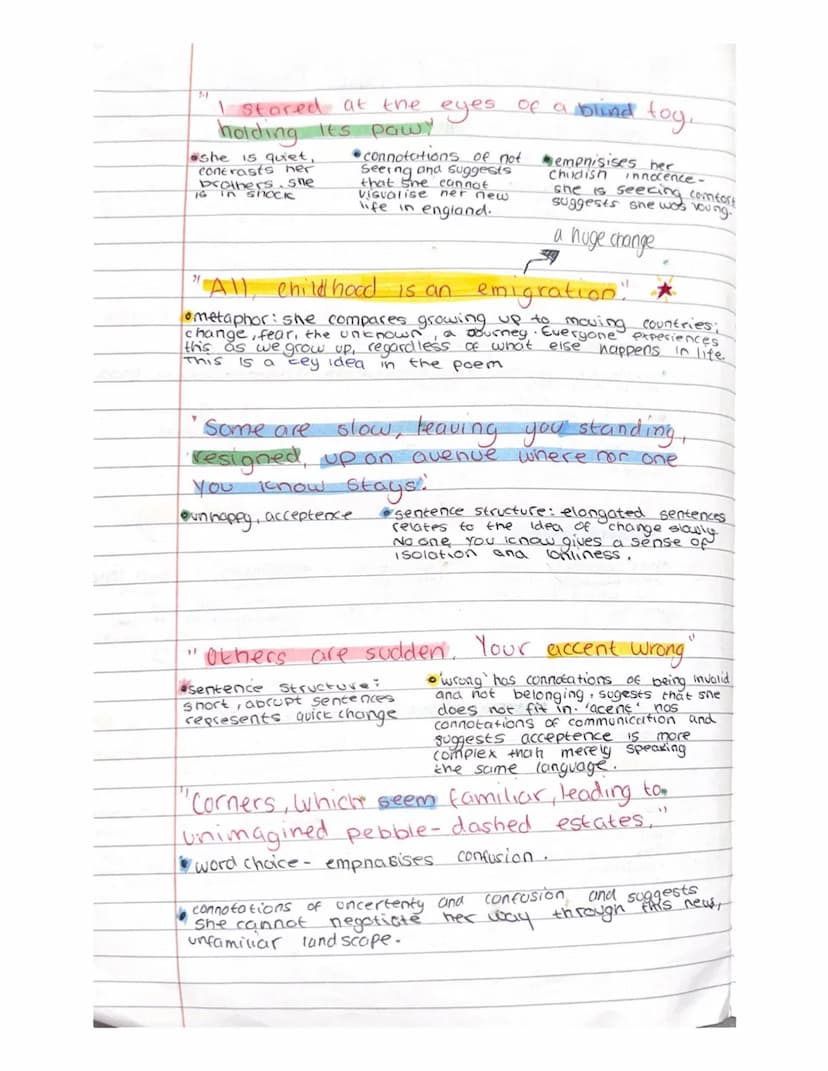 "I stared at the eyes of a blind toy,
holding its paw"
•she is quiet,
contrasts her
brothers. she
is in shock
•connotations of not
seeing and suggests
that she cannot
visualise her new
life in england.
•emphisises her
childish innocence-
she is seeking comfort
suggests she was young.
a huge change
"All childhood is an emigration."
•metaphor: she compares growing up to moving countries;
change, fear, the unknown, a journey. Everyone experiences
this as we grow up, regardless of what else happens in life.
This is a key idea in the poem
'Some are slow, leaving you standing,
resigned, up an avenue where nor one
you know stays.'
•unhappy, acceptence
•sentence structure: elongated sentences
relates to the idea of change slowly
No one you know gives a sense of
isolation and lonliness.
"Others are sudden. Your accent wrong"
•sentence structure:
short, abrupt sentences
represents quick change
•'wrong' has connotations of being invalid
and not belonging, sugests that she
does not fit in. 'acent' has
connotations of communication and
suggests acceptence is more
complex than merely speaking
the same language.
"Corners, which seem familiar, leading to
unimagined pebble-dashed estates,"
•word choice - emphasises confusion.
•connotations of uncertenty and confusion and suggests
she cannot negotiate her way through this new,
unfamiliar landscape.